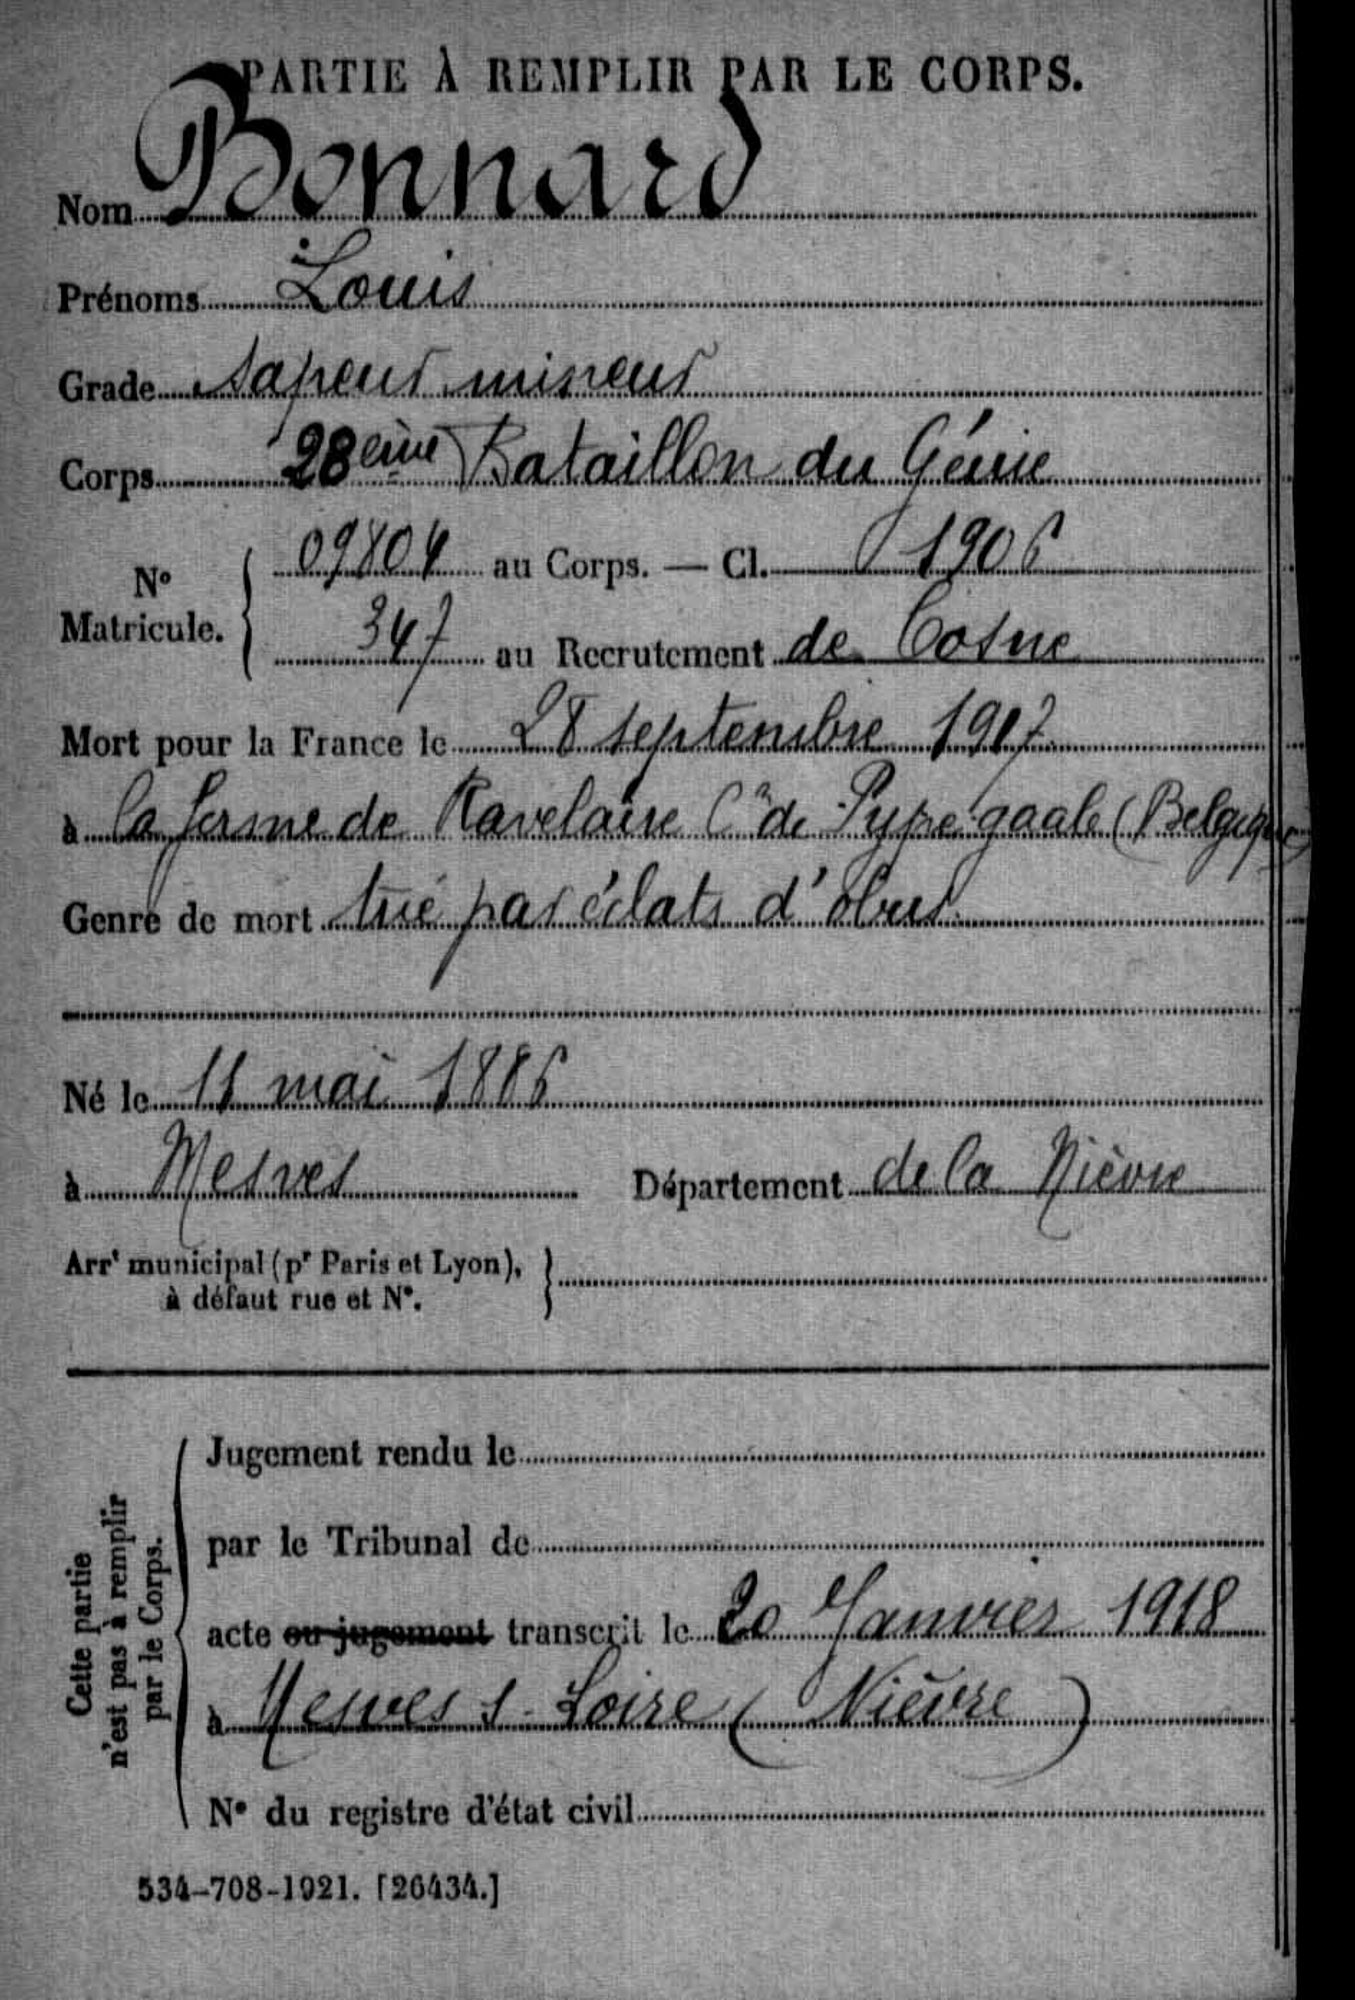 PARTIE À REMPLIR PAR LE CORPS.
Nom Bonnard
Prénoms Louis
Grade sapeur mineur
Corps 28ème Bataillon du Génie
N° Matricule. { 09804 au Corps. — Cl. 1906
347 au Recrutement de Cosne
Mort pour la France le 28 septembre 1917
à la ferme de Ravelaire Cne de Pypegaale (Belgique)
Genre de mort tué par éclats d'obus
Né le 11 mai 1886
à Mesves Département de la Nièvre
Arrt municipal (pr Paris et Lyon), }
à défaut rue et N°.
Cette partie n'est pas à remplir par le Corps.
Jugement rendu le
par le Tribunal de
acte ou jugement transcrit le 20 Janvier 1918
à Mesves s. Loire (Nièvre)
N° du registre d'état civil
534-708-1921. [26434.]